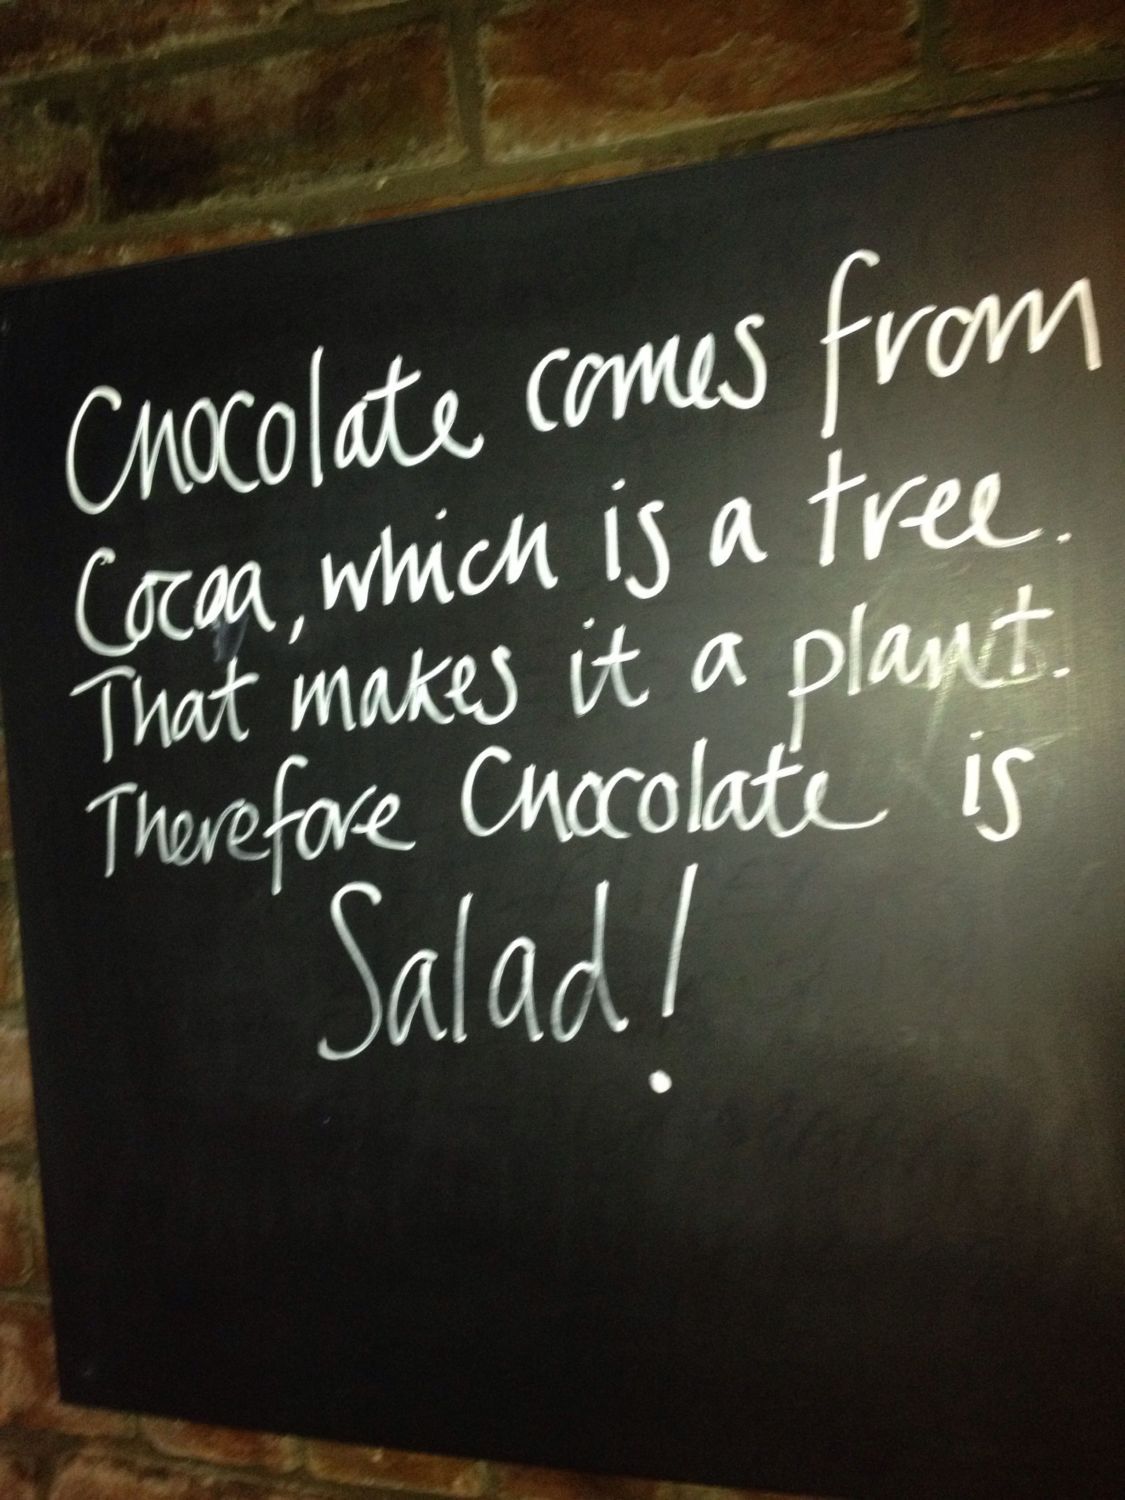 Chocolate comes from
Cocoa, which is a tree.
That makes it a plant.
Therefore Chocolate is
Salad!